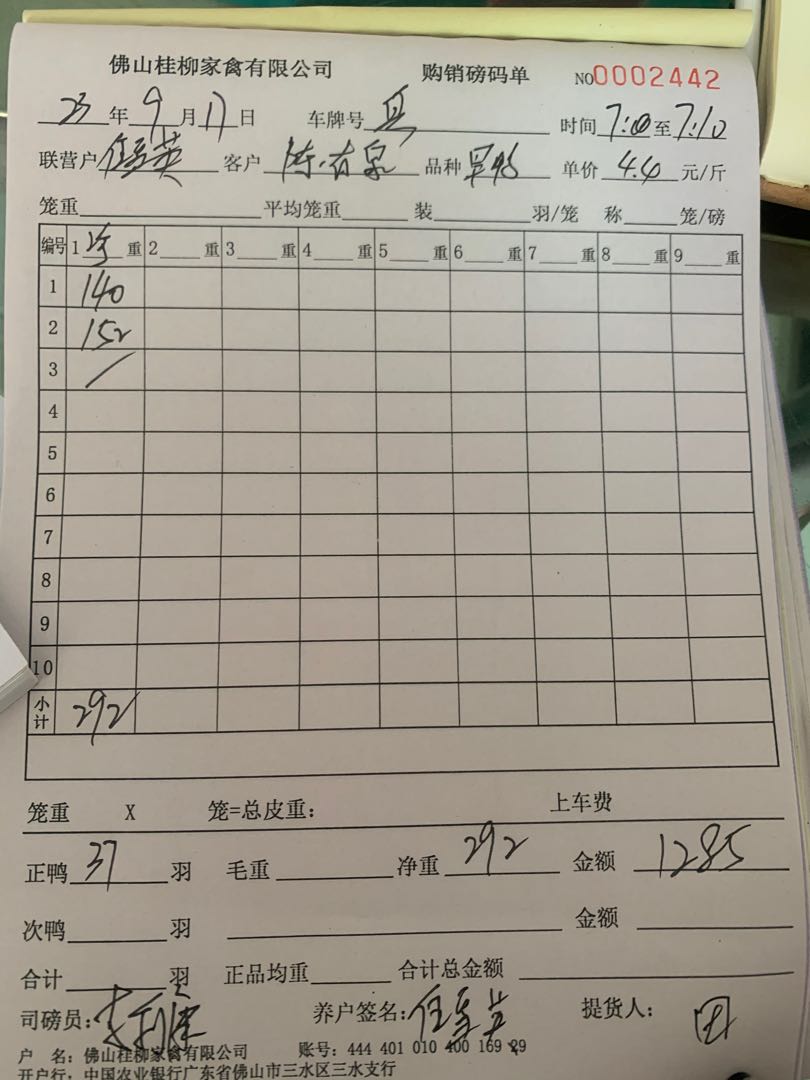 佛山桂柳家禽有限公司 购销磅码单 NO0002442
23年9月17日 车牌号 时间7:00至7:10
联营户 英 客户 陈 泉 品种 单价4.40元/斤
笼重 平均笼重 装 羽/笼 称 笼/磅
编号 1净重 2 重 3 重 4 重 5 重 6 重 7 重 8 重 9 重
1 140
2 152
3 /
4
5
6
7
8
9
10
小计 292
笼重 X 笼=总皮重: 上车费
正鸭37羽 毛重 净重292 金额1285
次鸭 羽 金额
合计 羽 正品均重 合计总金额
司磅员: 养户签名: 英 提货人:
户 名: 佛山桂柳家禽有限公司 账号: 444 401 010 400 169 29
开户行: 中国农业银行广东省佛山市三水区三水支行